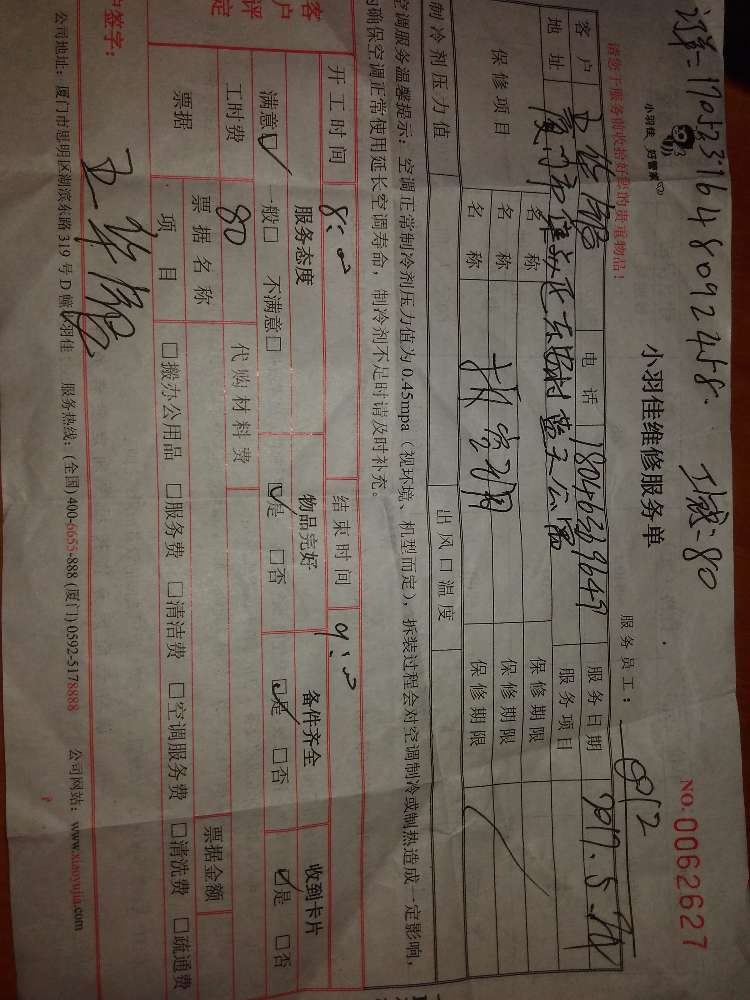 订单-1705231648092458. 工钱:80
小羽佳 好管家
小羽佳维修服务单
NO:0062627
请您于服务前收拾好您的贵重物品!
服务员工: 812
客户 电话 18046319649 服务日期 2017.5.24
地址 厦门市 蓝天公寓 服务项目
保修项目 名称 保修期限
名称 保修期限
名称 保修期限
制冷剂压力值 出风口温度
空调服务温馨提示:空调正常制冷剂压力值为0.45mpa(视环境、机型而定),拆装过程会对空调制冷或制热造成一定影响,
的确保空调正常使用延长空调寿命,制冷剂不足时请及时补充。
开工时间 8:00 结束时间 9:00
客户评定
服务态度 物品完好 备件齐全 收到卡片
满意☑ 一般□ 不满意□ ☑是 □否 ☑是 □否 ☑是 □否
工时费 80 代购材料费
票据 票据名称 票据金额
项目 □搬办公用品 □服务费 □清洁费 □空调服务费 □清洗费 □疏通费
户签字:
公司地址:厦门市思明区湖滨东路319号D幢小羽佳 服务热线:(全国)400-6655-888 (厦门)0592-5178888 公司网站:www.xiaoyujia.com